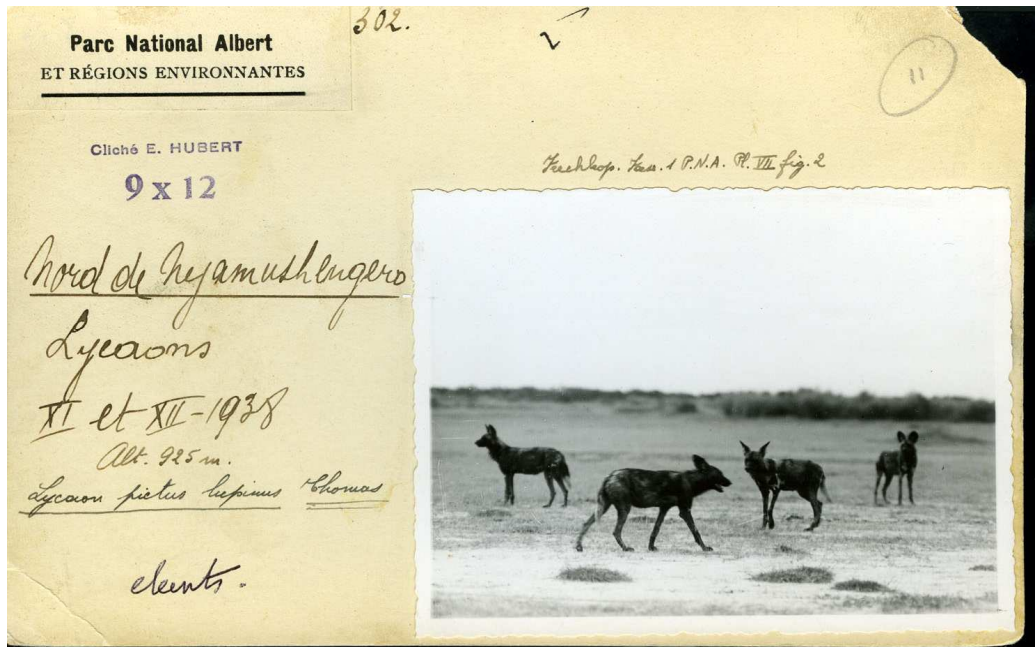 302.
Parc National Albert
ET RÉGIONS ENVIRONNANTES
11
Cliché E. HUBERT
9 x 12
P.N.A. Pl. VII fig. 2
Nord de Nyamushengero
Lycaons
XI et XII-1938
Alt. 925 m.
Lycaon pictus lupinus Thomas